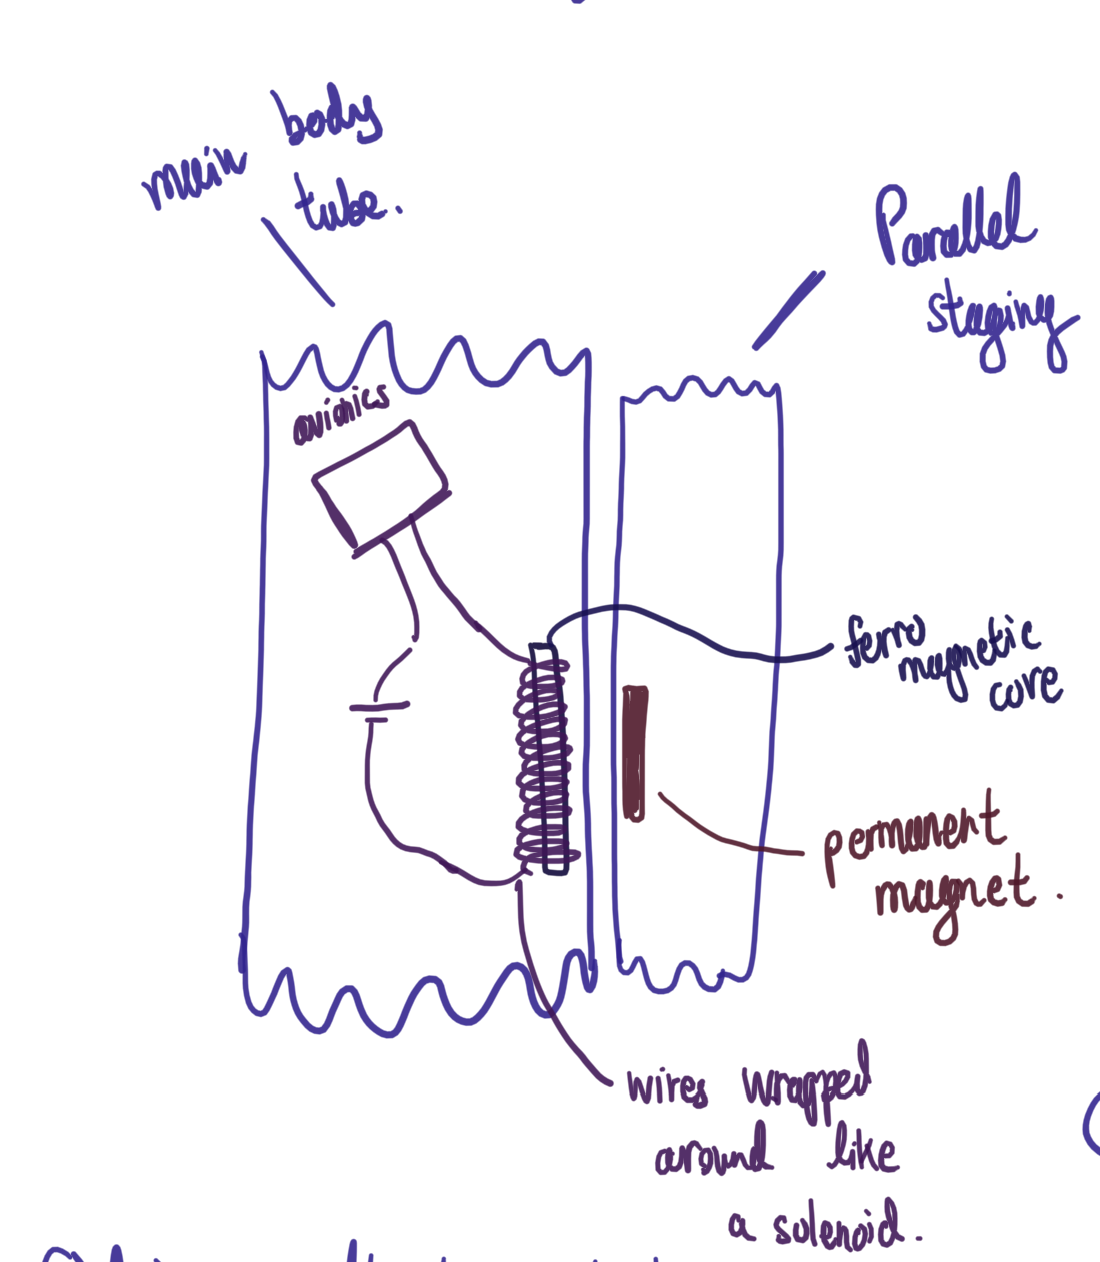 main body
tube.
Parallel
staging
avionics
ferro
magnetic
core
permanent
magnet.
wires wrapped
around like
a solenoid.